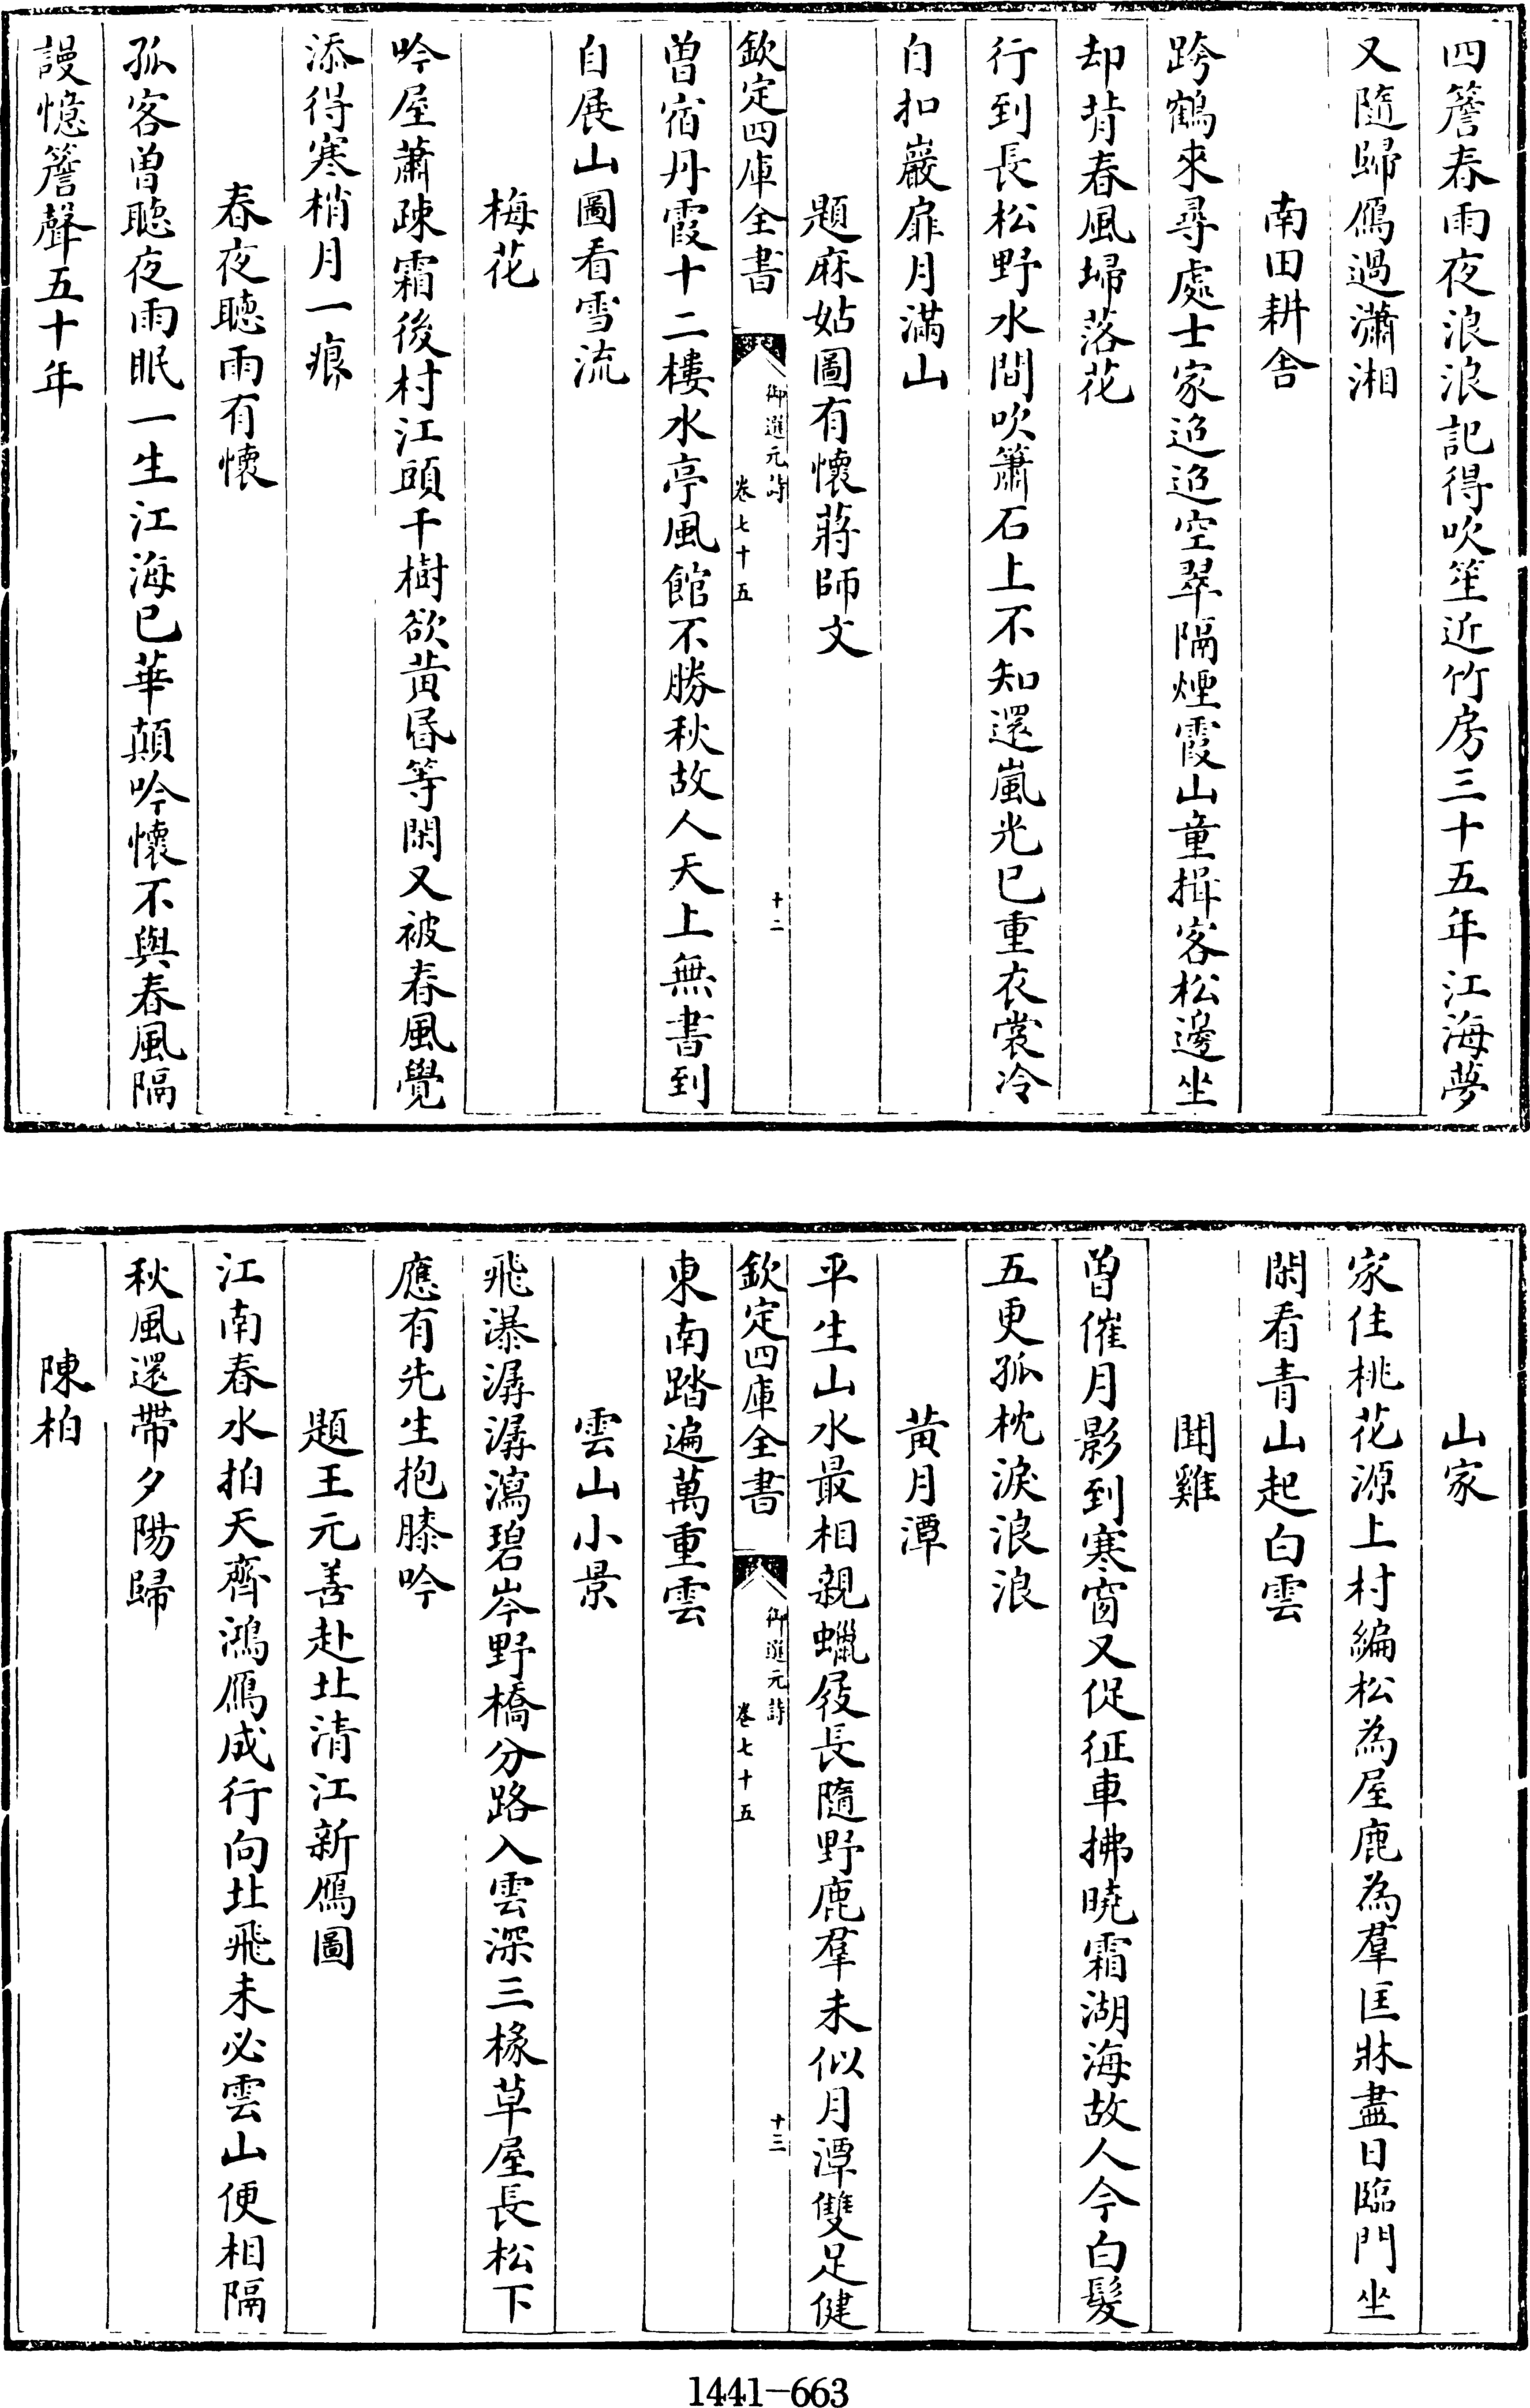 四簷春雨夜浪浪記得吹笙近竹房三十五年江海夢
又隨歸鴈過瀟湘
南田耕舍
跨鶴來尋處士家迢迢空翠隔煙霞山童揖客松邊坐
却背春風埽落花
行到長松野水間吹簫石上不知還嵐光已重衣裳冷
自扣巖扉月滿山
題麻姑圖有懷蔣師文
欽定四庫全書
御選元詩
卷七十五
十二
曽宿丹霞十二樓水亭風館不勝秋故人天上無書到
自展山圖看雪流
梅花
吟屋蕭疎霜後村江頭千樹欲黄昏等閑又被春風覺
添得寒梢月一痕
春夜聽雨有懷
孤客曽聽夜雨眠一生江海已華顛吟懷不與春風隔
謾憶簷聲五十年
山家
家住桃花源上村編松為屋鹿為羣匡牀盡日臨門坐
閑看青山起白雲
聞雞
曽催月影到寒窗又促征車拂曉霜湖海故人今白髮
五更孤枕淚浪浪
黄月潭
平生山水最相親蠟屐長隨野鹿羣未似月潭雙足健
欽定四庫全書
御選元詩
卷七十五
十三
東南踏遍萬重雲
雲山小景
飛瀑潺潺瀉碧岑野橋分路入雲深三椽草屋長松下
應有先生抱膝吟
題王元善赴北清江新鴈圖
江南春水拍天齊鴻鴈成行向北飛未必雲山便相隔
秋風還帶夕陽歸
陳柏
1441-663